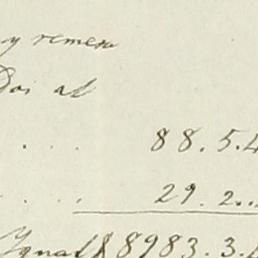 y remesa
Dos al
. . . 88.5.4
. . . 29.2..
Ygual $ 8983.3.